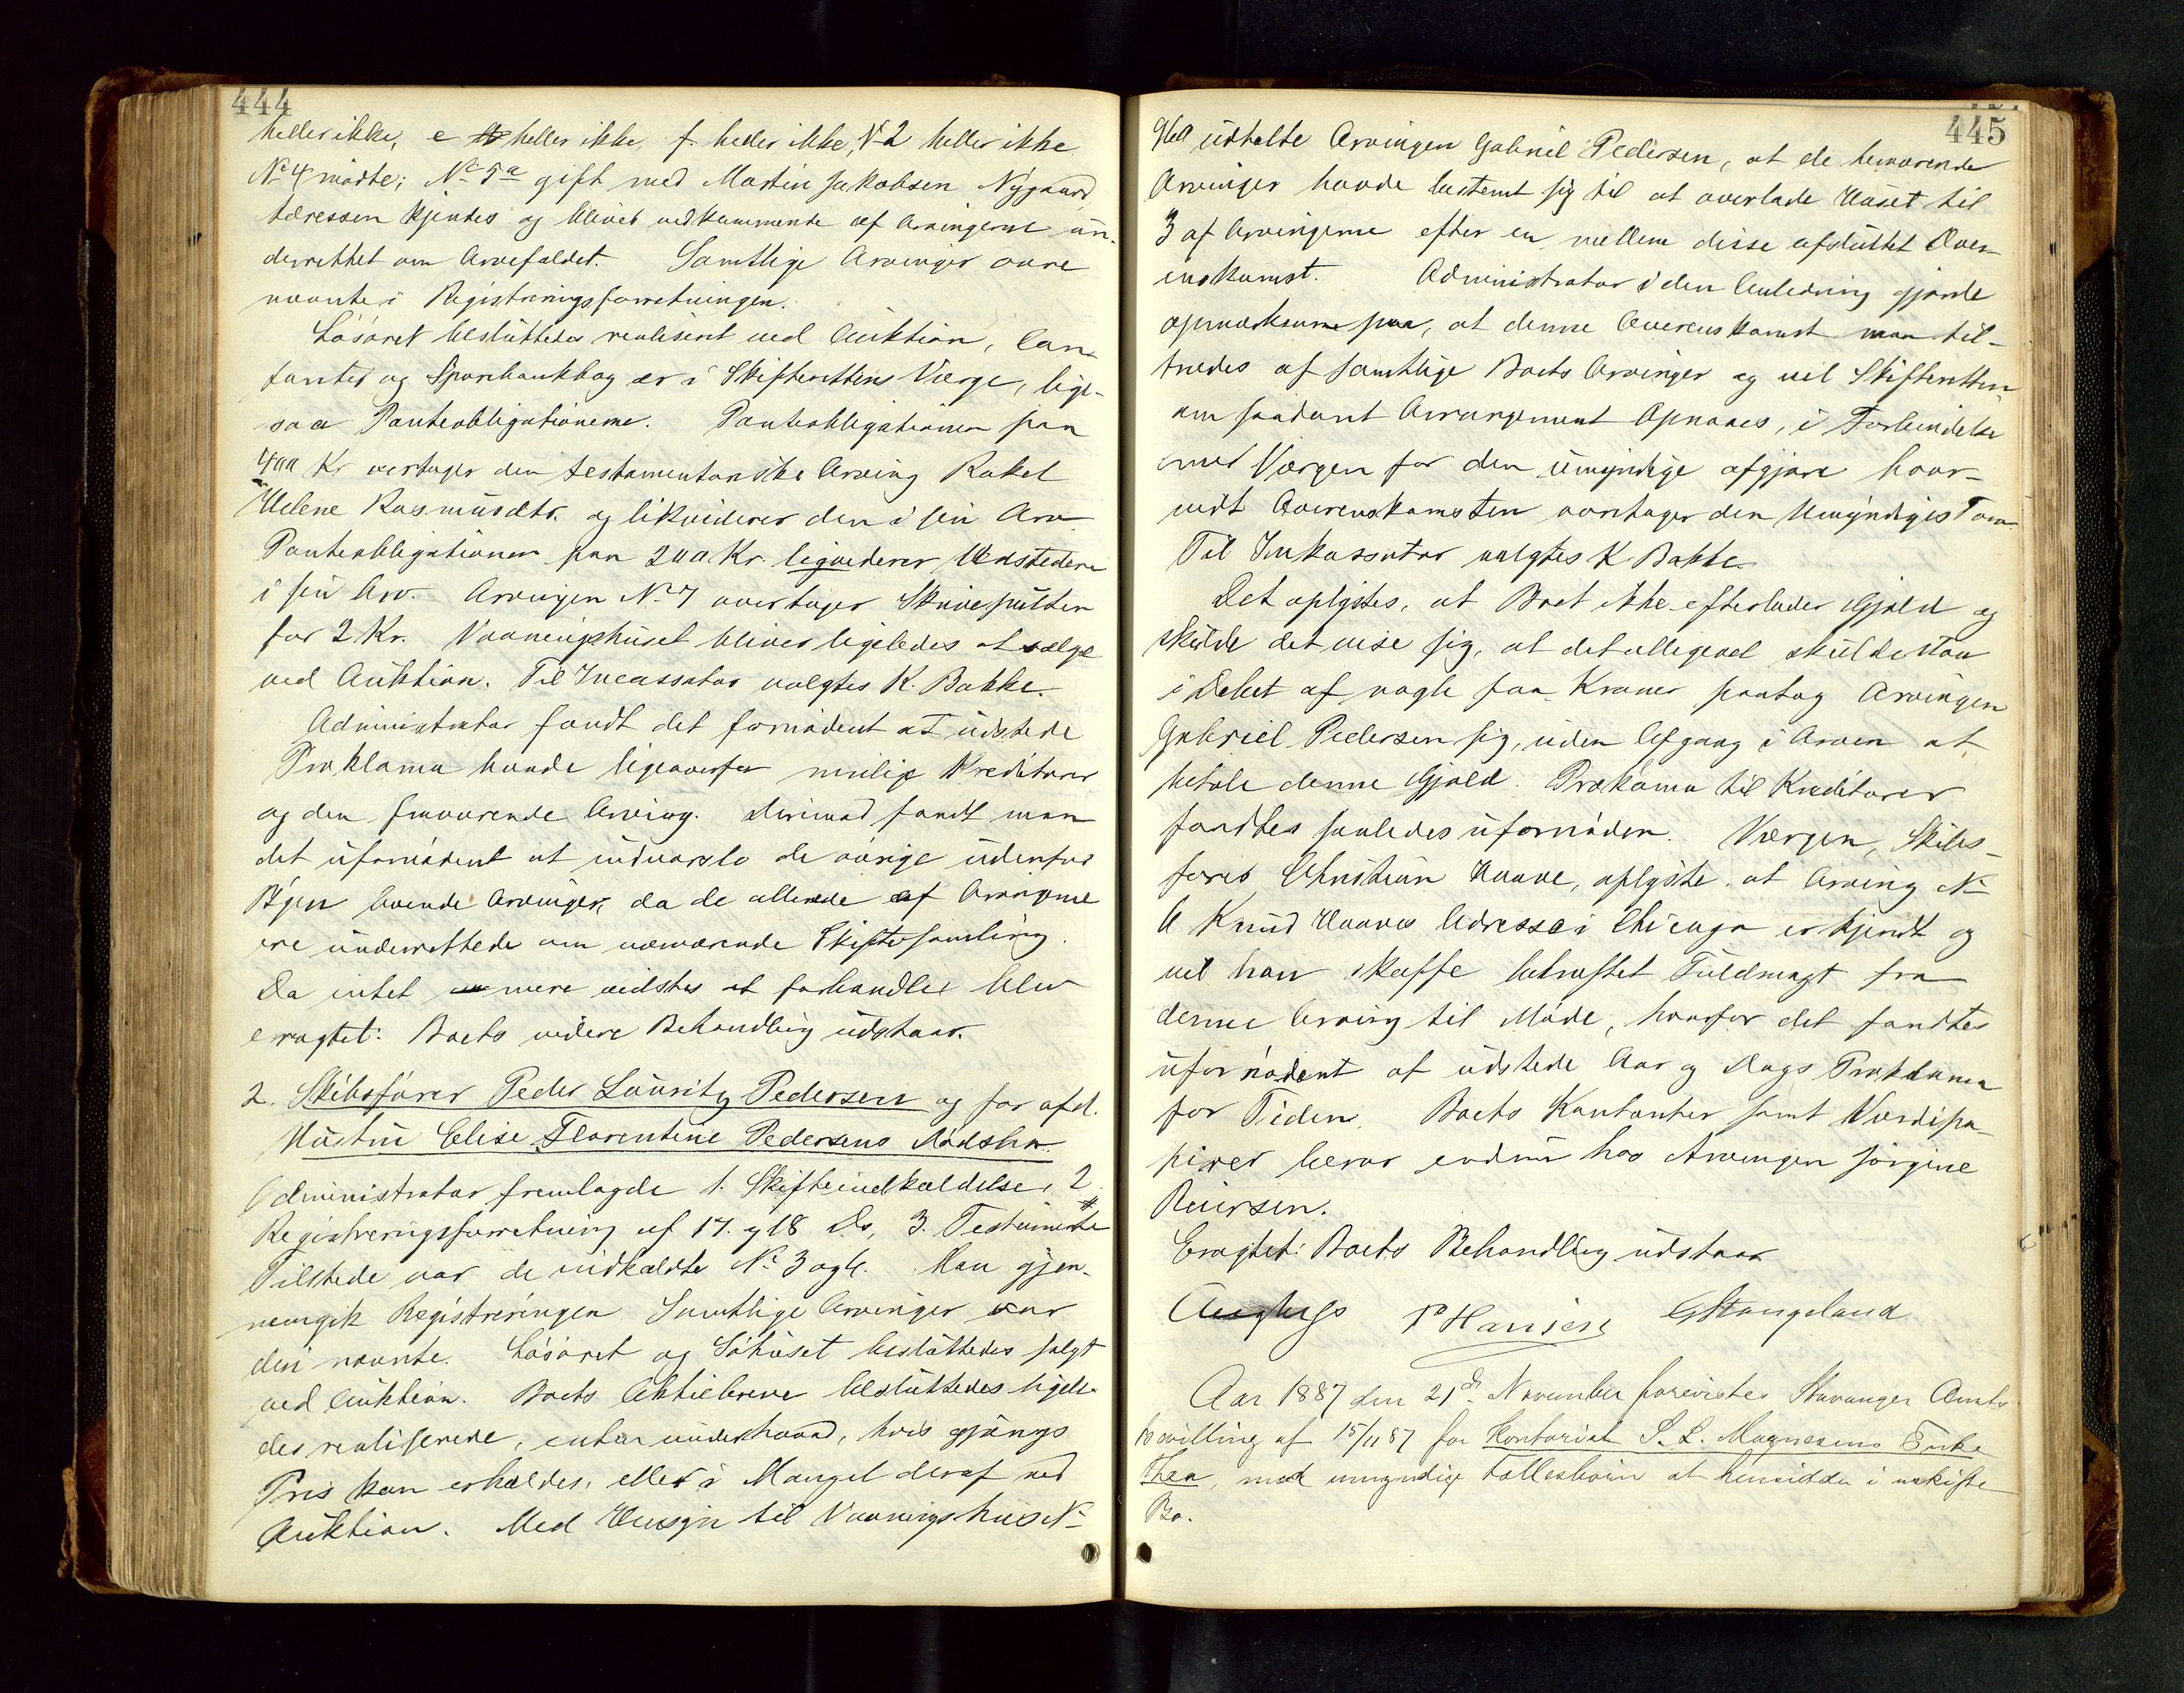 444
heller ikke, e heller ikke, f. heller ikke, No 2 heller ikke
No 4 mødte; No 5a gift med Martin Jakobsen Nygaard
Adressen kjendes og bliver vedkommende af Arvingerne un-
derrettet om Arvefaldet. Samtlige Arvinger vare
nævnte i Registreringsforretningen.
Løsøret besluttedes realiseret ved Auktion, Con-
tanter og Sparebankbog er i Skifterettens Værge, lige-
saa Panteobligationerne. Panteobligationen paa
400 Kr overtager den testamentariske Arving Rakel
Helene Rasmusdtr. og likviderer den i sin Arv
Panteobligationen paa 200 Kr. liqviderer Udstederen
i sin Arv. Arvingen No 7 overtager Skrivepulten
for 2 Kr. Vaaningshuset bliver ligeledes at sælge
ved Auktion. Til Incassator valgtes K. Bakke.
Administrator fandt det fornødent at udstede
Proklama baade ligeoverfor mulige Kreditorer
og den fraværende Arving. Derimod fandt man
det ufornødent at indvarsle de øvrige udenfor
Byen boende Arvinger, da de allerede af Arvingerne
ere underrettede om nærværende Skiftesamling.
Da intet mere vidstes at forhandle blev
eragtet: Boets videre Behandling udstaar.
2. Skibsfører Peder Lauritz Pedersen og for afd.
Hustru Elise Florentine Pedersens Dødsbo.
Administrator fremlagde 1. Skifteindkaldelse, 2
Registreringsforretning af 17. og 18 Ds, 3. Testamente
Tilstede var de indkaldte No 3 og 6. Man gjen-
nemgik Registreringen Samtlige Arvinger var
deri nævnte. Løsøret og Søhuset besluttedes solgt
ved Auktion. Boets Aktiebreve besluttedes ligele-
des realiserede, enten underhaand, hvis gjængs
Pris kan erholdes, eller i Mangel deraf ved
Auktion. Med Hensyn til Vaaningshus No
445
960 udtalte Arvingen Gabriel Pedersen, at de hærværende
Arvinger havde bestemt sig til at overlade Huset til
3 af Arvingerne efter en mellem disse afsluttet Over-
enskomst. Administrator i den Anledning gjorde
opmærksom paa, at denne Overenskomst maa til-
trædes af samtlige Boets Arvinger og vil Skifteretten,
om saadant Arrangement opnaaes, i Forbindelse
med Værgen for den umyndige afgjøre hvor-
vidt Overenskomsten varetager den Umyndiges Tarv
Til Inkassator valgtes K Bakke
Det oplystes, at Boet ikke efterlader Gjæld og
skulde det vise sig, at det alligevel skulde staa
i Debet af nogle faa Kroner paatog Arvingen
Gabriel Pedersen sig, uden Afgang i Arven at
betale denne Gjæld. Proklama til Kreditorer
fandtes saaledes ufornøden. Værgen, Skibs-
fører Christian Haave, oplyste, at Arving No
6 Knud Haaves Adresse i Chicago er kjendt og
vil han skaffe bekræftet Fuldmagt fra
denne Arving til Møde, hvorfor det fandtes
ufornødent at udstede Aar og Dags Proklama
for Tiden. Boets Kontanter samt Værdipa-
pirer beror endnu hos Arvingen Jørgine
Reiersen.
Eragtet: Boets Behandling udstaar
P Hansen GStangeland
Aar 1887 den 21de November forevistes Stavanger Amts
bevilling af 15/11 87 for Kontorist S. L. Magnesens Enke
Thea, med umyndige Fællesbørn at hensidde i uskiftet
Bo.